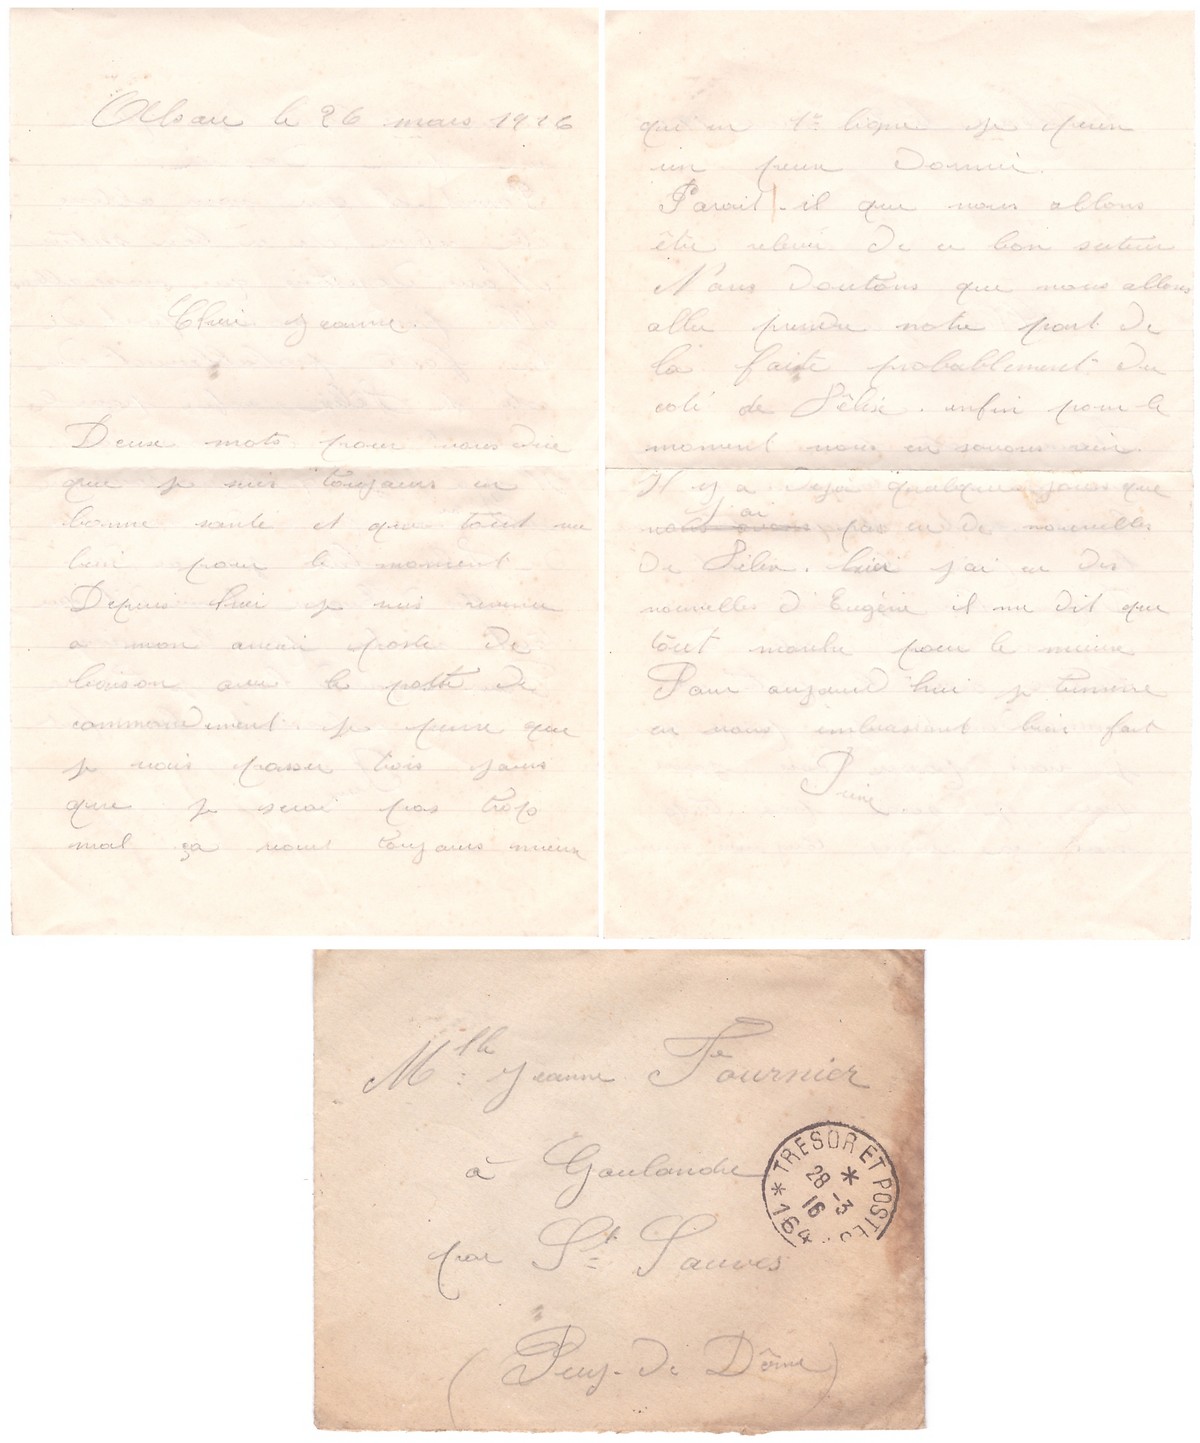 Alsace le 26 mars 1916
Chère Jeanne.
Deux mots pour vous dire
que je suis toujours en
bonne santé et que tout va
bien pour le moment
Depuis hier je suis revenu
a mon ancien poste de
liaison avec le poste de
commandement je pense que
je vais passer trois jours
que je serai pas trop
mal ça vaut toujours mieux
qu'en 1re ligne je peux
un peux dormir.
Parait-il que nous allons
être relevé de ce bon secteur
N'ous doutons que nous allons
aller prendre notre part de
la faite probablement du
coté de Félix. enfin pour le
moment nous en savons rien.
Il y a deja quelques jours que
j'ai pas eu de nouvelles
de Félix. hier j'ai eu des
nouvelles d'Eugène il me dit que
tout marche pour le mieux
Pour aujourd'hui je termine
en vous embrassant bien fort
Mlle Jeanne Fournier
à
par St Sauves
(Puy-de Dôme)
* TRESOR ET POSTES *
28 -3
16
164